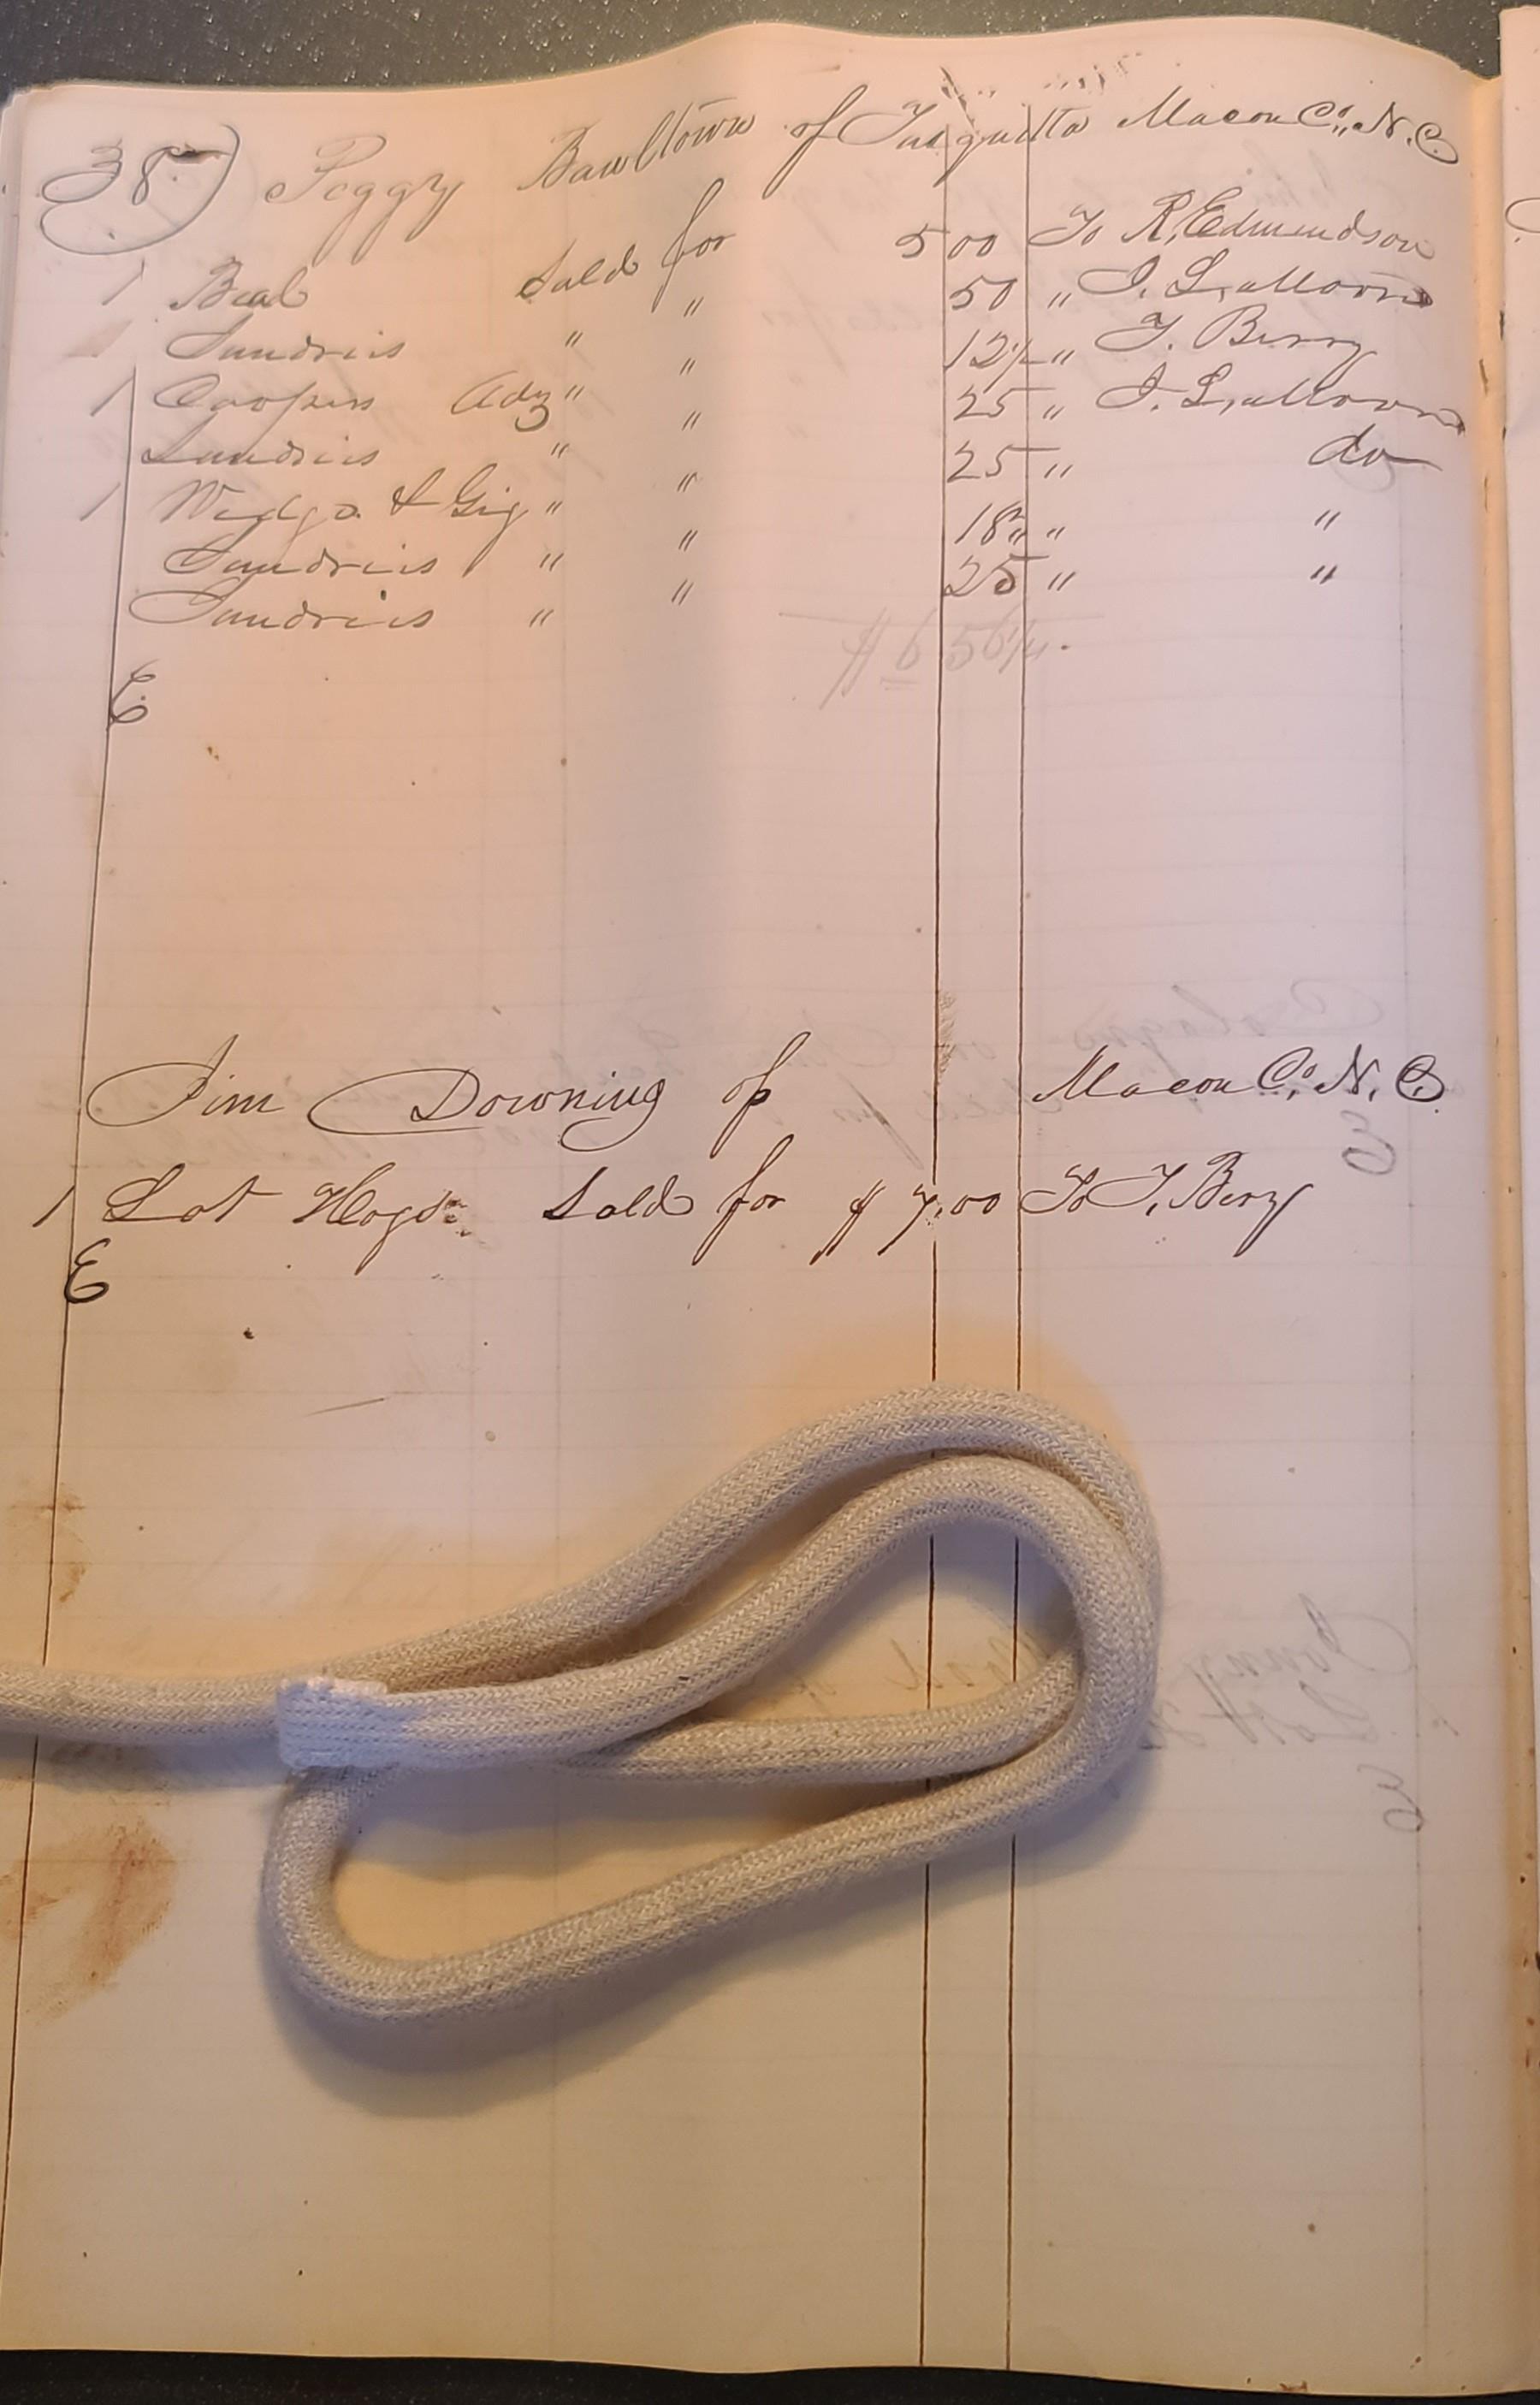 38) Peggy Bawltown of Tusquitta Macon Co., N.C.
1 Bead Sold for 5 00 To R. Edmundson
1 Sundries " " 50 " I. L. Moore
1 Coopers Adz " " 12½ " T. Berry
Sundries " " 25 " I. L. Moore
1 Wedge & Gig " " 25 " do
Sundries " " 18¾ " "
Sundries " " 25 " "
$ 6 56¼.
E
Jim Downing of Macon Co. N. C.
1 Lot Hogs. Sold for $ 7.00 To T. Berry
E